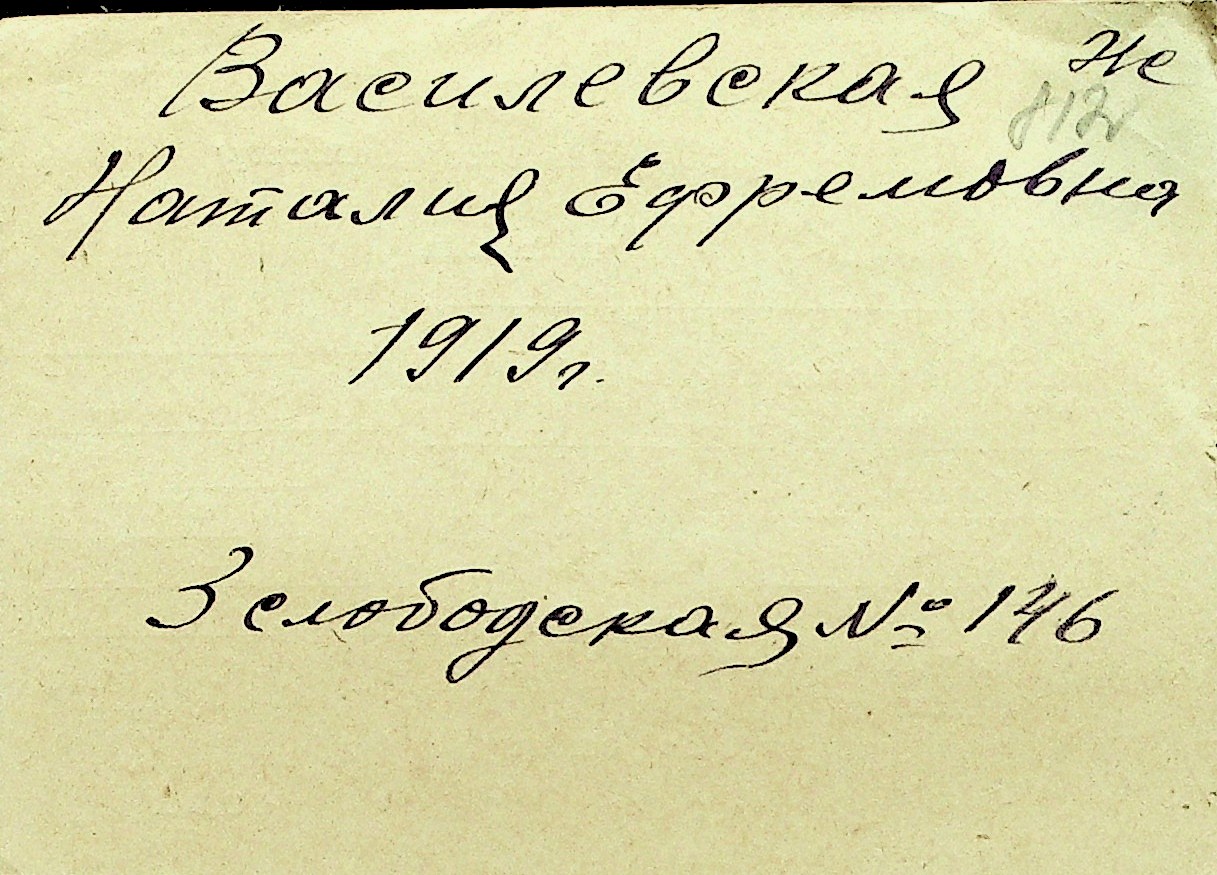 Василевская
Наталия Ефремовна
1919г.
3 слободская № 146